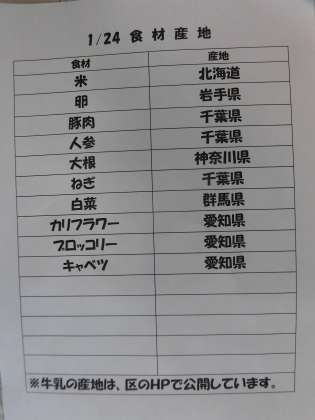 1/24 食材産地
食材 産地
米 北海道
卵 岩手県
豚肉 千葉県
人参 千葉県
大根 神奈川県
ねぎ 千葉県
白菜 群馬県
カリフラワー 愛知県
ブロッコリー 愛知県
キャベツ 愛知県
※牛乳の産地は、区のHPで公開しています。